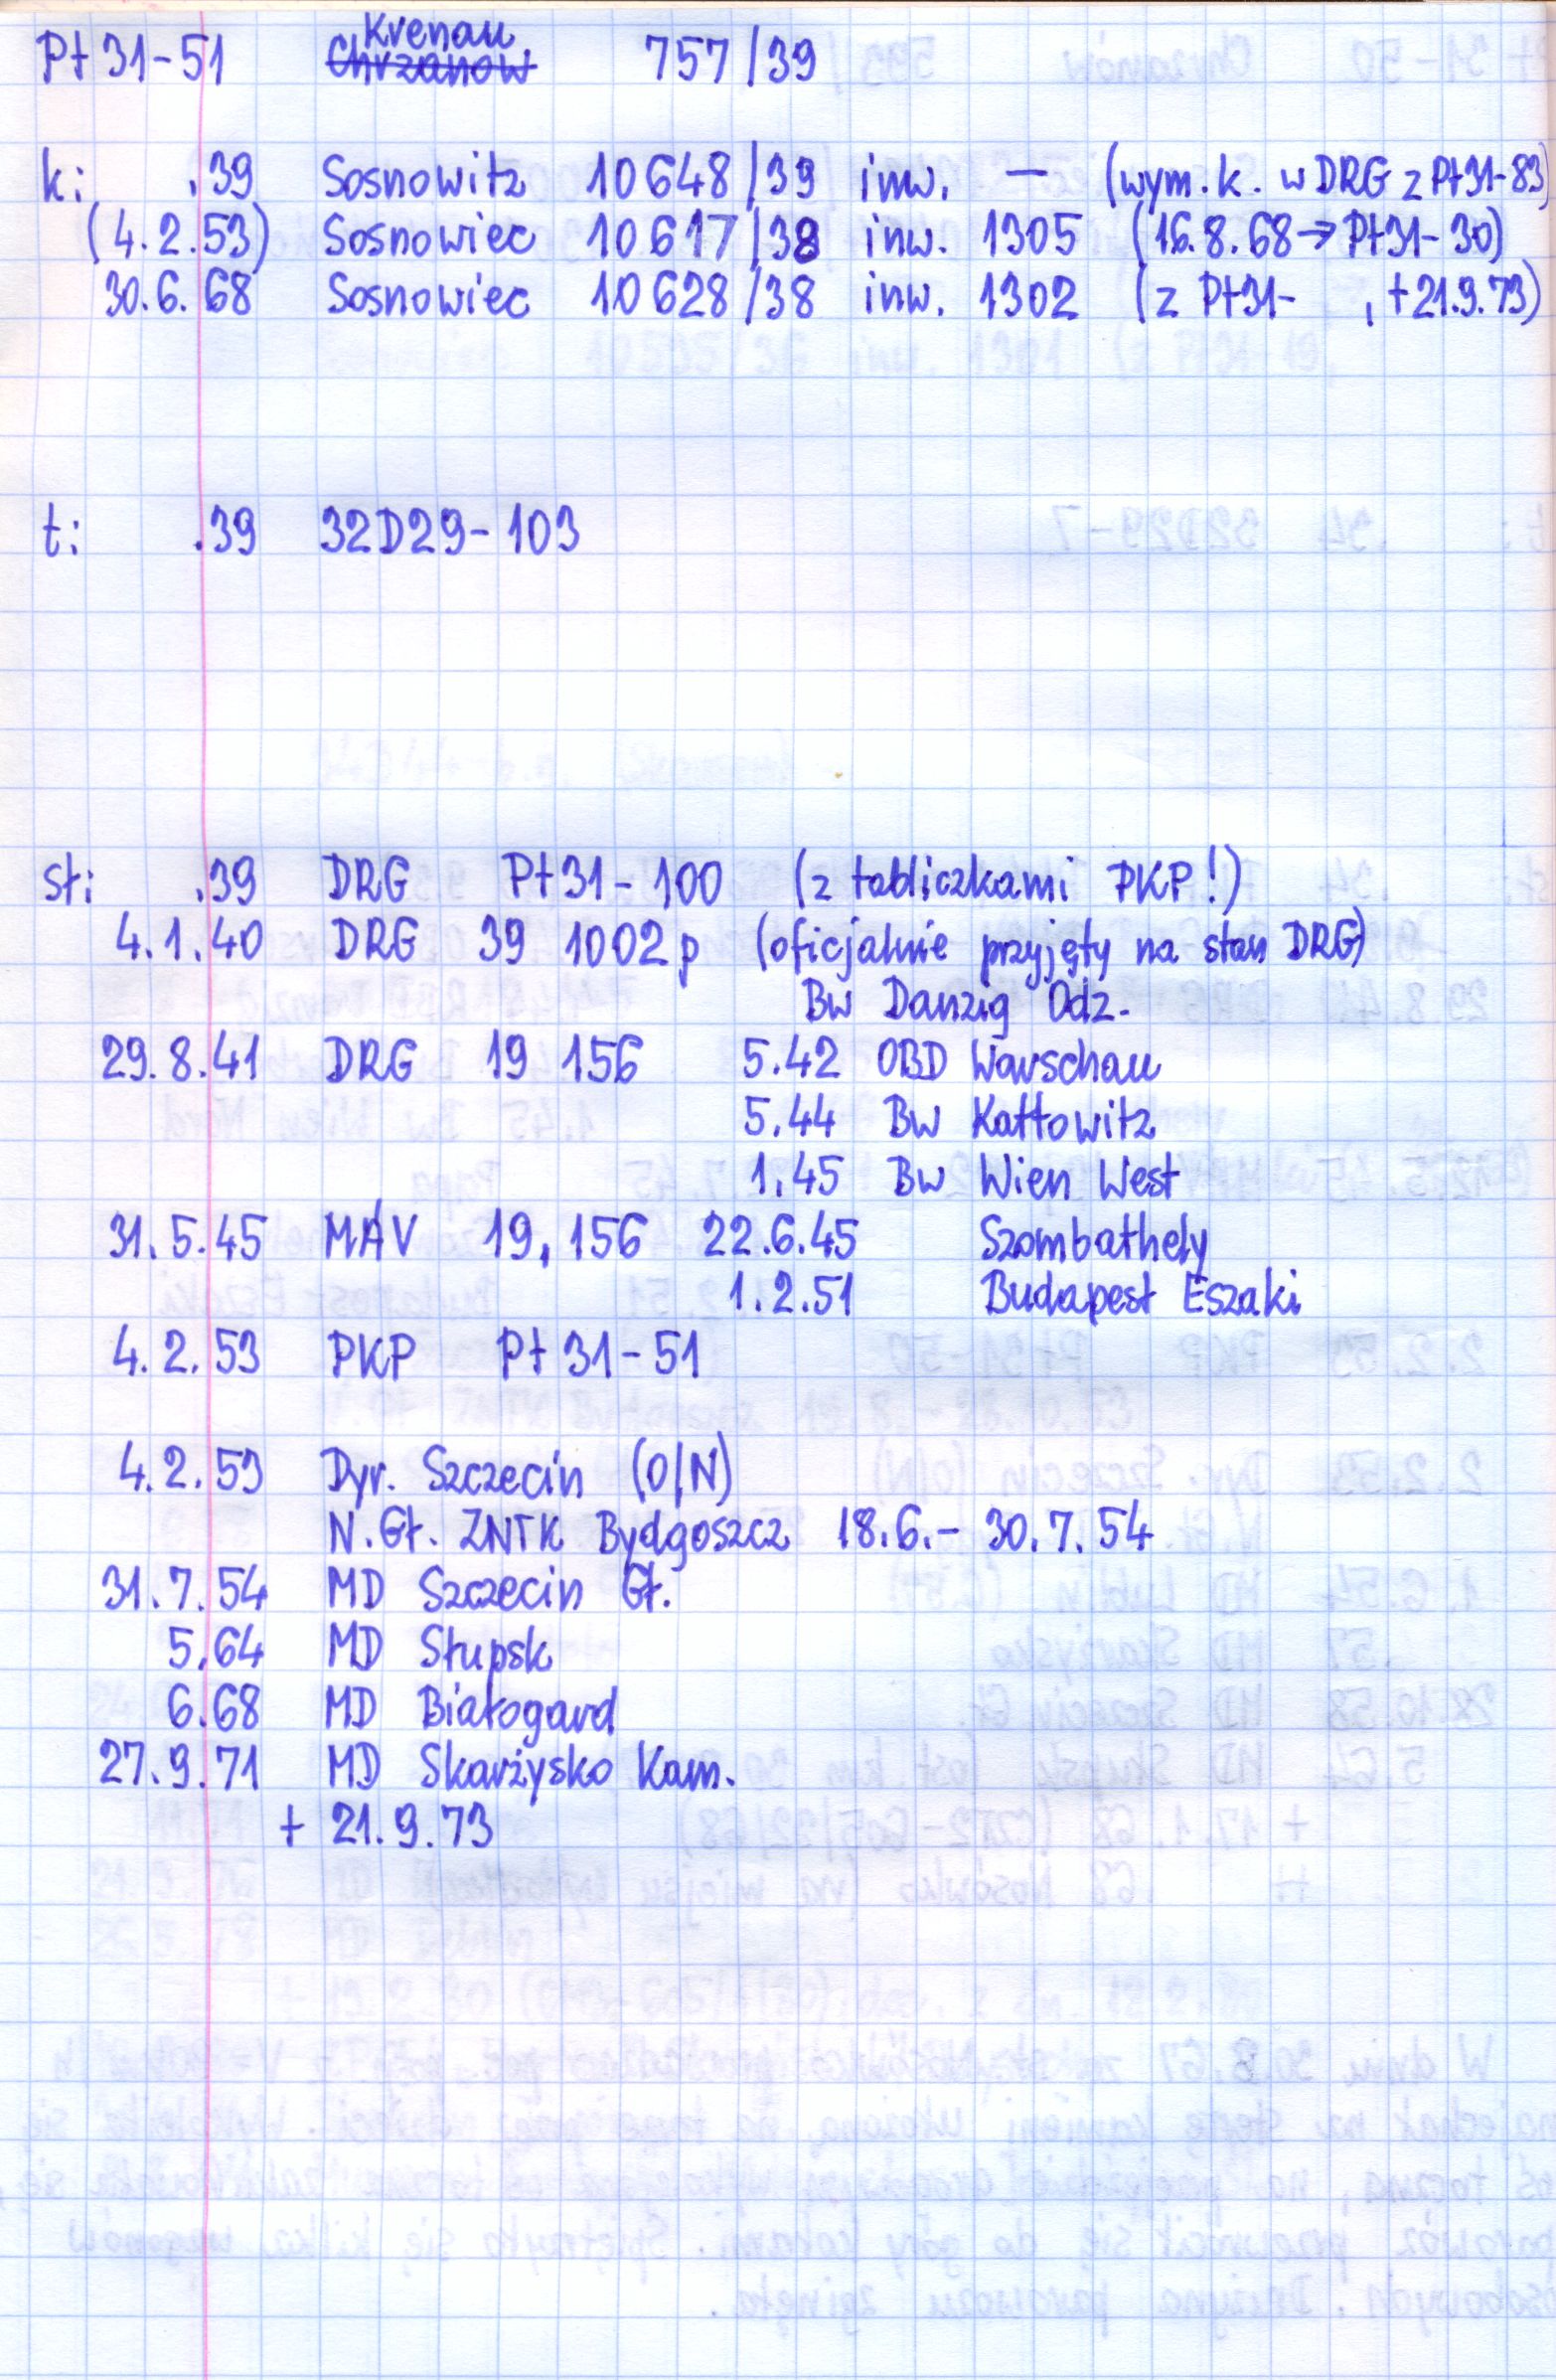 Pt 31-51 Krenau ~~Chrzanow~~ 757/39
k: .39 Sosnowitz 10648/39 inw. — (wym. k. w DRG z Pt31-83)
(4.2.53) Sosnowiec 10617/38 inw. 1305 (16.8.68→Pt31-30)
30.6.68 Sosnowiec 10628/38 inw. 1302 (z Pt31- , +21.9.73)
t: .39 32D29-103
st: .39 DRG Pt31-100 (z tabliczkami PKP!)
4.1.40 DRG 39 1002p (oficjalnie przyjęty na stan DRG)
Bw Danzig Odz.
29.8.41 DRG 19 156 5.42 OBD Warschau
5.44 Bw Kattowitz
1.45 Bw Wien West
31.5.45 MÁV 19,156 22.6.45 Szombathely
1.2.51 Budapest Eszaki
4.2.53 PKP Pt 31-51
4.2.53 Dyr. Szczecin (O/N)
N.Gł. ZNTK Bydgoszcz 18.6.- 30.7.54
31.7.54 MD Szczecin Gł.
5.64 MD Słupsk
6.68 MD Białogard
27.9.71 MD Skarżysko Kam.
+ 21.9.73